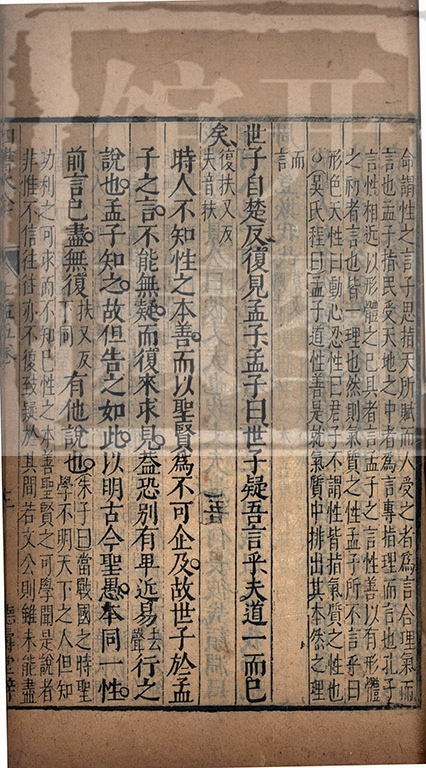 命謂性之言子思指天所賦而人受之者為言合理氣而
言也孟子指民受天地之中者為言專指理而言也孔子
言性相近以形體之已具者言孟子之言性善以有形體
之初者言也皆一理也然則氣質之性孟子所不言乎曰
形色天性曰動心忍性曰君子不謂性皆指氣質之性也
○吳氏程曰孟子道性善是就氣質中排出其本然之理
言
世子自楚反復見孟子孟子曰世子疑吾言乎夫道一而已
矣復扶又反
夫音扶
時人不知性之本善而以聖賢為不可企及故世子於孟
子之言不能無疑而復來求見蓋恐別有卑近易去聲行之
說也孟子知之故但告之如此以明古今聖愚本同一性
前言已盡無復扶又反
下同有他說也朱子曰當戰國之時聖
學不明天下之人但知
功利之可求而不知已性之本善聖賢之可學聞是說者
非惟不信往往亦不復致疑於其間若文公則雖未能盡
上孟五卷
德壽堂梓